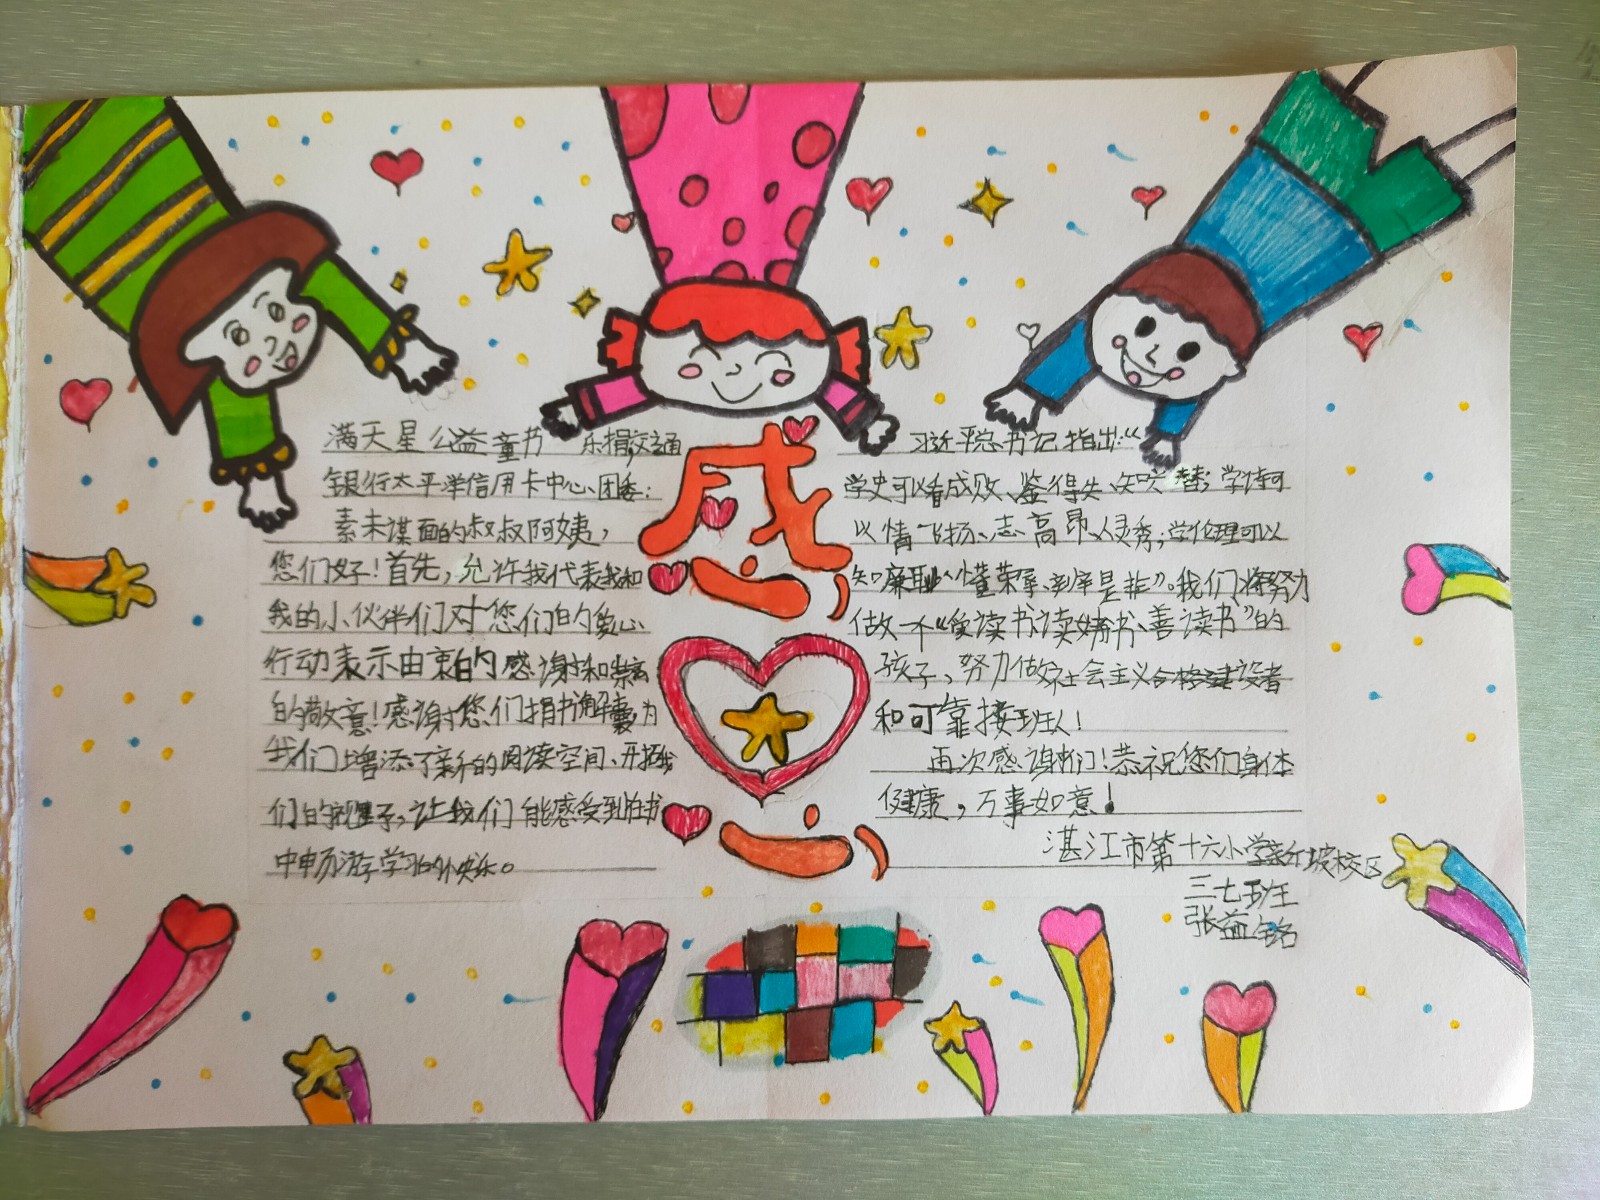 满天星公益童书 乐捐,交通
银行太平洋信用卡中心团委:
素未谋面的叔叔阿姨,
您们好!首先,允许我代表我和
我的小伙伴们对您们的爱心
行动表示由衷的感谢和崇高
的敬意!感谢您们捐书解囊,为
我们增添了新的阅读空间、开拓我
们的视野,让我们能感受到在书
中畅游学习的快乐。
感
心
习近平总书记指出:“
学史可以看成败、鉴得失、知兴替;学诗可
以情飞扬、志高昂、人灵秀;学伦理可以
知廉耻、懂荣辱、辨是非”。我们将努力
做一个“爱读书、读好书、善读书”的
孩子,努力做社会主义合格建设者
和可靠接班人!
再次感谢你们!恭祝您们身体
健康,万事如意!
湛江市第十六小学新坡校区
三七班
张益铭